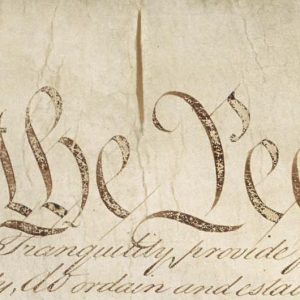 the Peo
Tranquility, provide
ty, do ordain and estab